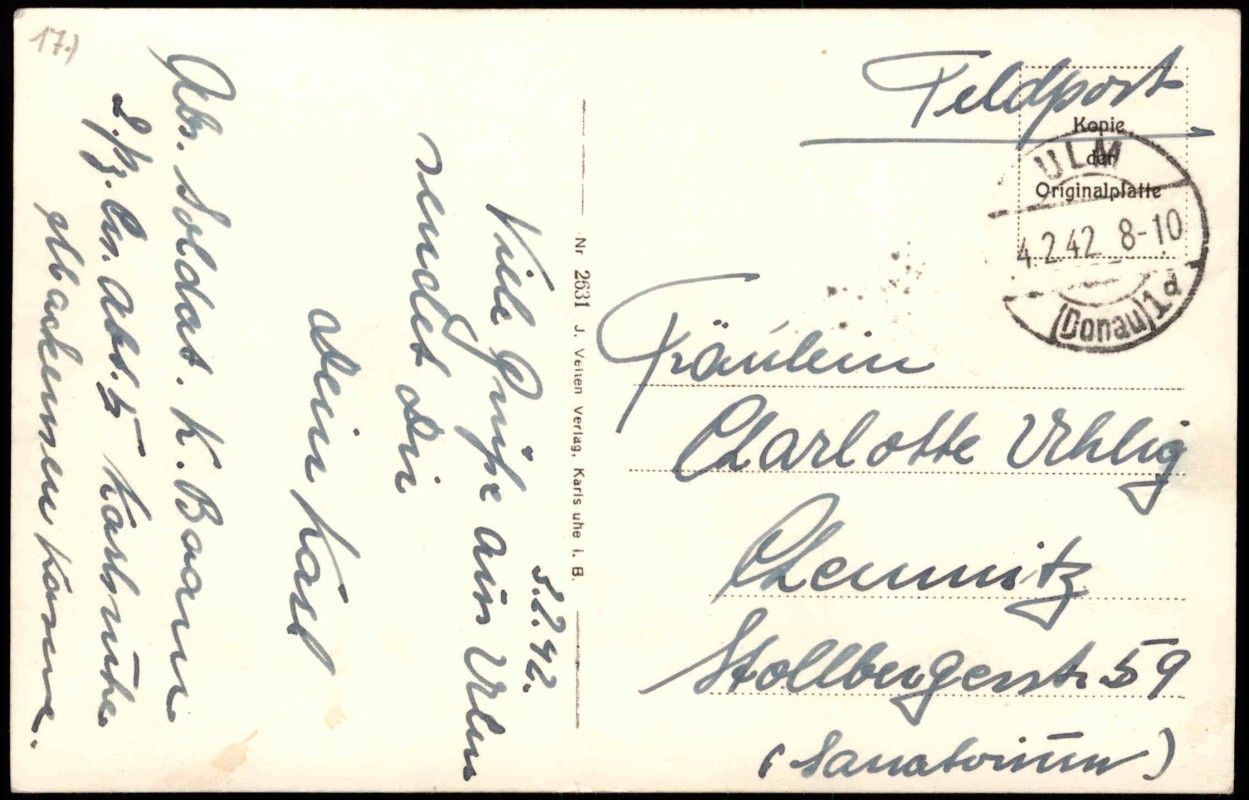 17.)
Feldpost
Kopie
der
Originalplatte
ULM
4.2.42 8-10
(Donau) 1d
Fräulein
Charlotte Uhlig
Chemnitz
Stollbergerstr 59
(Sanatorium)
Nr 2631 J. Velten Verlag, Karls uhe i. B.
5.2.42.
Viele Grüße aus Ulm
sendet Dir
Dein Karl
Abs. Soldat. K. Baam
2. Abt. 5 Karlsruhe
Mackensen Kaserne.